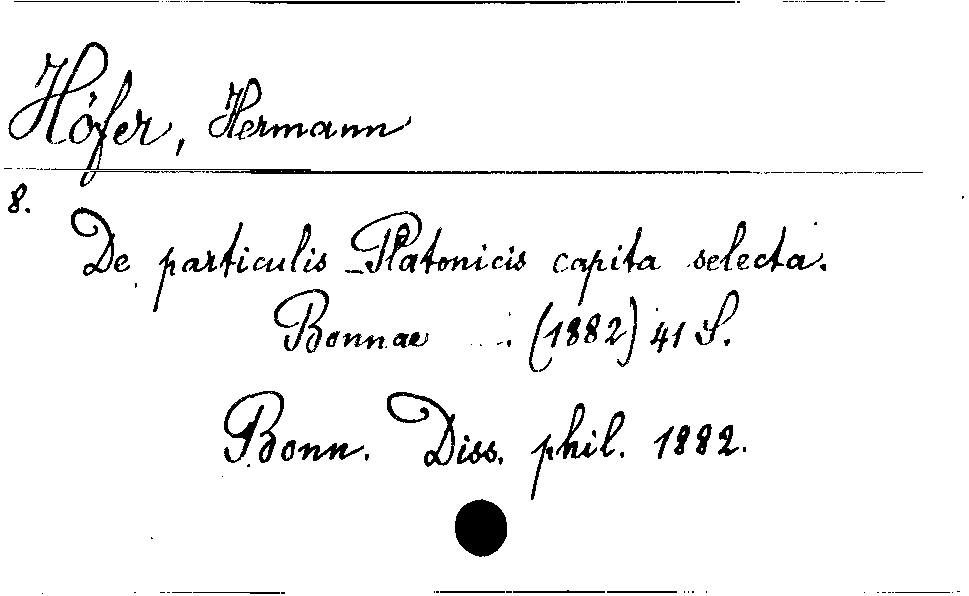 Höfer, Hermann
8.
De particulis Platonicis capita selecta.
Bonnae (1882) 41 S.
Bonn. Diss. phil. 1882.